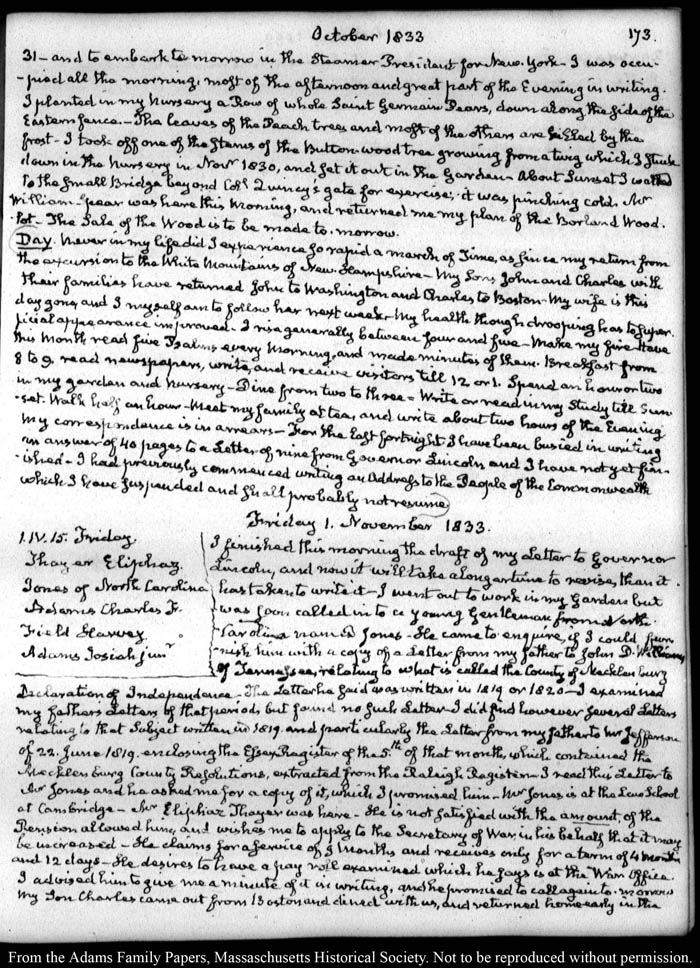 October 1833
173.
31 - and to embark to morrow in the Steamer President for New-York - I was occu-
-pied all the morning, most of the afternoon and great part of the Evening in writing.
I planted in my nursery a Row of whole Saint Germain Pears, down along the side of the
Eastern fence. - The leaves of the Peach trees and most of the others are killed by the
frost - I took off one of the Stems of the Button-wood tree growing from a twig which I stuck
down in the Nursery in Novr 1830, and set it out in the Garden - About Sunset I walked
to the small Bridge beyond Coll Quincy's gate for exercise; it was pinching cold. Mr
William Spear was here this morning, and returned me my plan of the Borland Wood.
-lot - The Sale of the Wood is to be made to-morrow.
Day. Never in my life did I experience so rapid a march of Time, as since my return from
the excursion to the White Mountains of New-Hampshire - My Sons John and Charles with
their families have returned John to Washington and Charles to Boston - My wife is this
day gone, and I myself am to follow her next week - My health though drooping has to super-
ficial appearance improved - I rise generally between four and five - Make my fire - Have
this Month read five Psalms every Morning, and made minutes of them. Breakfast from
8 to 9, read newspapers, write, and receive visitors till 12 or 1. Spend an hour or two
in my garden and nursery - Dine from two to three - Write or read in my Study till Sun
-set. Walk half an hour - Meet my family at tea, and write about two hours of the Evening
My correspondence is in arrears - For the last fortnight I have been busied in writing
an answer of 40 pages to a Letter of nine from Governor Lincoln and I have not yet fin-
-ished - I had previously commenced writing an Address to the People of the Commonwealth
which I have suspended and shall probably not resume
Friday 1. November 1833.
1. IV. 15. Friday.
Thayer Eliphaz
Jones of North Carolina
Adams Charles F.
Field Harvey
Adams Josiah junr
I finished this morning the draft of my Letter to Governor
Lincoln, and now it will take a longer time to revise, than it
has taken to write it - I went out to work in my Garden but
was soon called in to a young Gentleman from North-
Carolina named Jones - He came to enquire, if I could fur-
nish him with a copy of a Letter from my father to John D. Williams
of Tennessee, relating to what is called the County of Mecklenburg
Declaration of Independence - The Letter he said was written in 1819 or 1820 - I examined
my father's Letters of that period, but found no such Letter - I did find however several Letters
relating to that Subject written in 1819. and particularly the Letter from my father to Mr Jefferson
of 22. June 1819. enclosing the Essex Register of the 5.th of that month, which contained the
Mecklenburg County Resolutions, extracted from the Raleigh Register - I read this Letter to
Mr Jones and he asked me for a copy of it, which I promised him - Mr Jones is at the Law School
at Cambridge - Mr Eliphaz Thayer was here - He is not satisfied with the amount, of the
Pension allowed him, and wishes me to apply to the Secretary of War, in his behalf that it may
be increased - He claims for a service of 9 Months and receives only for a term of 4 Months
and 12 days - He desires to have a pay roll examined which he says is at the War Office.
I advised him to give me a minute of it in writing, and he promised to call again to-morrow
My Son Charles came out from Boston and dined with us, and returned home early in the
From the Adams Family Papers, Massachusetts Historical Society. Not to be reproduced without permission.